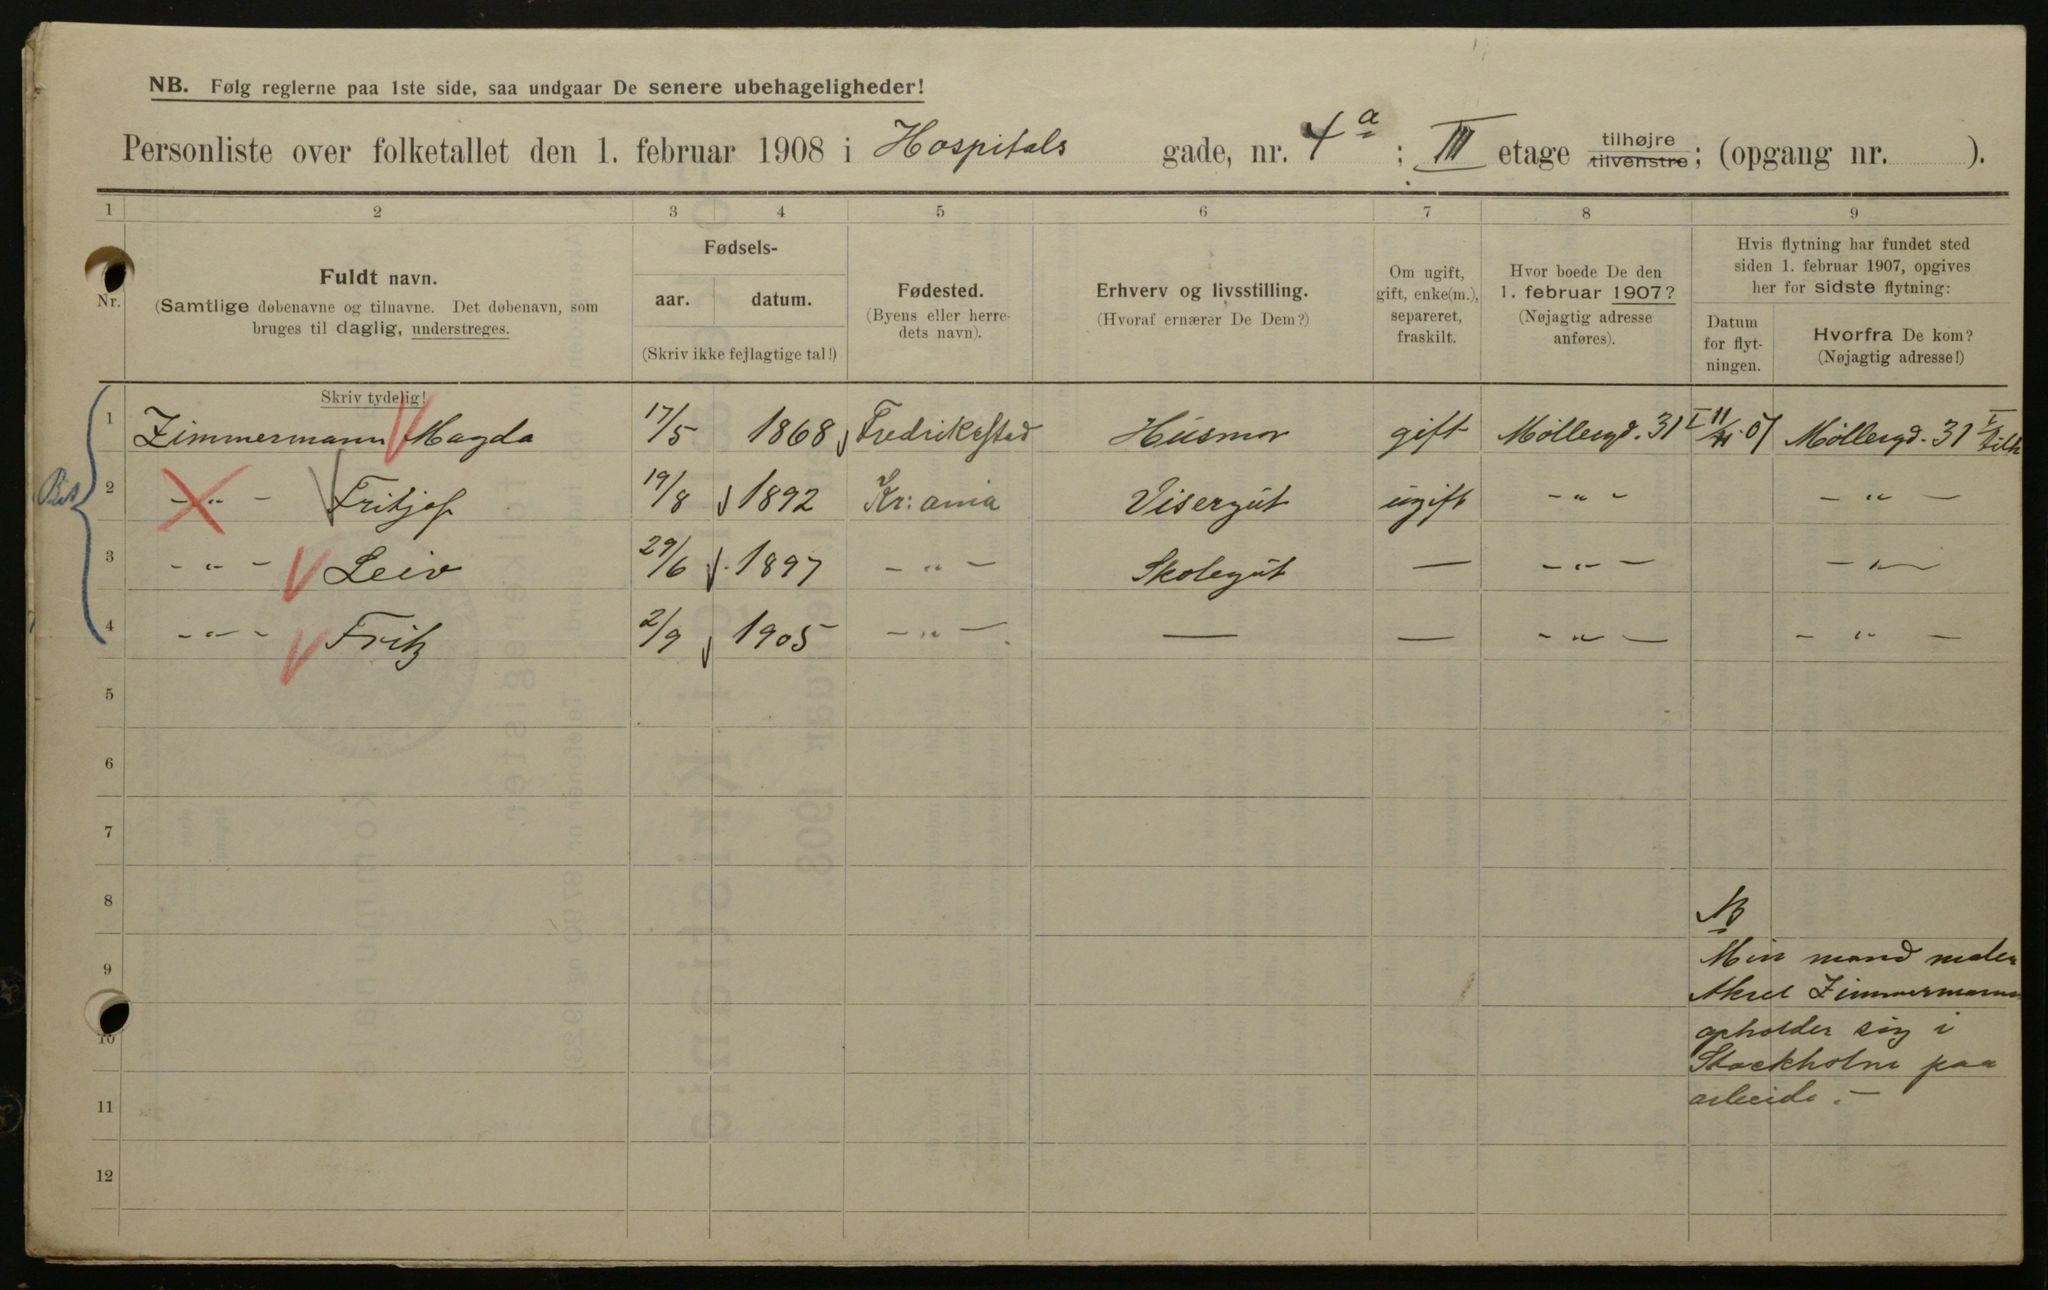 NB. Følg reglerne paa 1ste side, saa undgaar De senere ubehageligheder!
Personliste over folketallet den 1. februar 1908 i Hospitals gade, nr. 4 a ; III etage tilhøjre tilvenstre ; (opgang nr. ).
1 2 3 4 5 6 7 8 9
Nr.
Fuldt navn.
(Samtlige døbenavne og tilnavne. Det døbenavn, som
bruges til daglig, understreges.
Skriv tydelig!
Fødsels-
aar. datum.
(Skriv ikke fejlagtige tal!)
Fødested.
(Byens eller herre-
dets navn).
Erhverv og livsstilling.
(Hvoraf ernærer De Dem?)
Om ugift,
gift, enke(m.),
separeret,
fraskilt.
Hvor boede De den
1. februar 1907?
(Nøjagtig adresse
anføres).
Hvis flytning har fundet sted
siden 1. februar 1907, opgives
her for sidste flytning:
Datum
for flyt-
ningen.
Hvorfra De kom?
(Nøjagtig adresse!)
1 Zimmermann Magda 17/5 1868 Fredrikstad Husmor gift Møllergd. 31 I 11/11 07 Møllergd. 31 I tilh
2 - " - Fritjof 19/8 1892 Kr:ania Visergut ugift - " - - " -
3 - " - Leiv 29/6 1897 - " - Skolegut — - " - - " -
4 - " - Fritz 2/9 1905 - " - — — - " - - " -
5
6
7
8
9
10
11
12
NB
Min mand maler
Aksel Zimmermann
opholder sig i
Stockholm paa
arbeide. -